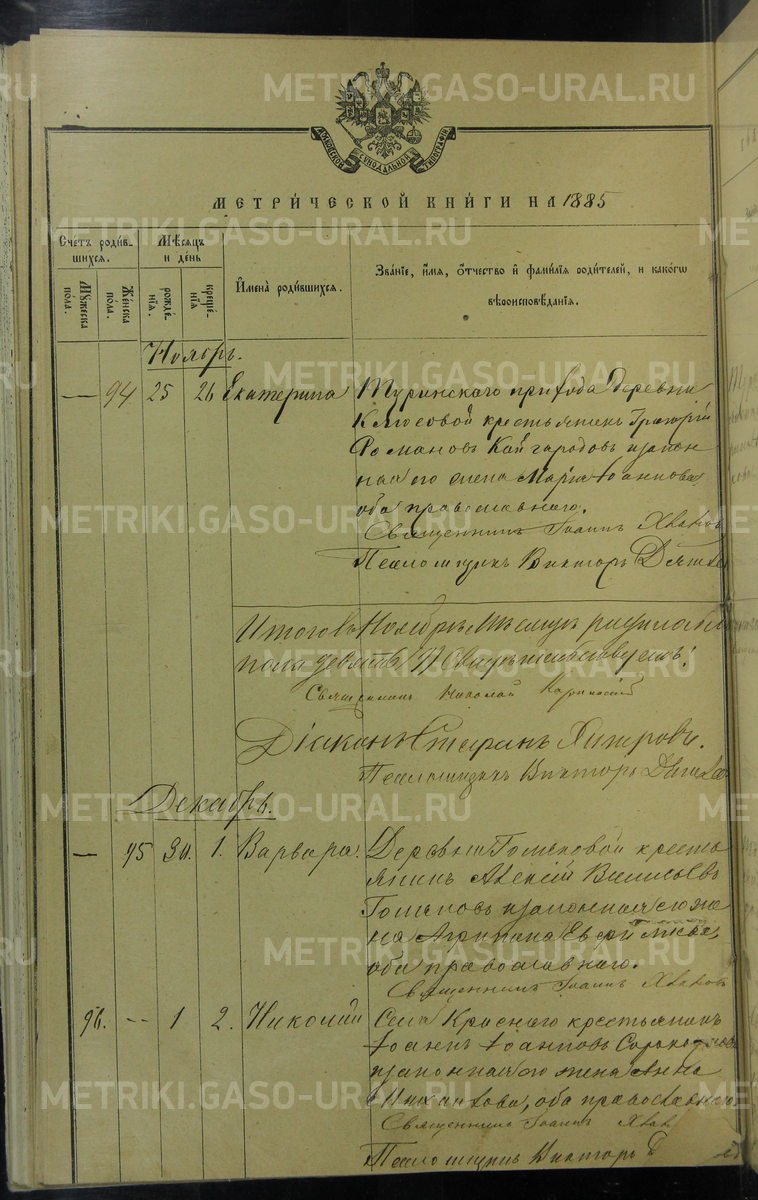 МОСКОВСКОЙ СѴНОДАЛЬНОЙ ТИПОГРАФІИ
МЕТРИ́ЧЕСКОЙ КНИ́ГИ НА 1885
Счетъ роди́вшихся.
Мѣсяцъ и де́нь
Имена̀ роди́вшихся.
Зва́ніе, и́мя, о́тчество и̂ фами́лія роди́телей, и како́гѡ вѣроисповѣ́данія.
Мꙋ́жеска по́ла.
Же́нска по́ла.
рожде́нія.
креще́нія
Ноябрь.
— 94 25 26 Екатерина Туринскаго прихода Деревни
Клюсовой крестьянинъ Григорій
Романовъ Кайгородовъ и закон
ная его жена Марія Іоаннова
оба православнаго.
Священникъ Іоаннъ
Псаломщикъ Викторъ
Итого въ Ноябрѣ мѣсяцѣ родилось
пола девять
Священникъ Николай
Діаконъ Стефанъ Хитровъ.
Псаломщикъ Викторъ
Декабрь.
— 95 30 1. Варвара. Деревни крестья
янинъ Алексій Васильевъ
и законная его же
на Агрипина
оба православнаго.
Священникъ Іоаннъ
96. -- 1 2. Николай Села Краснаго крестьянинъ
Іоаннъ Іоанновъ
и законная его жена Анна
оба православнаго
Священникъ Іоаннъ
Псаломщикъ Викторъ
METRIKI.GASO-URAL.RU